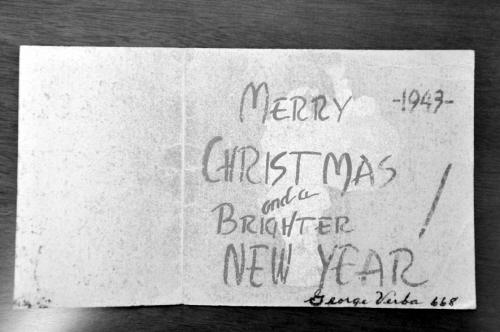 MERRY -1943-
CHRISTMAS
and a
BRIGHTER
NEW YEAR!
George Verba 668